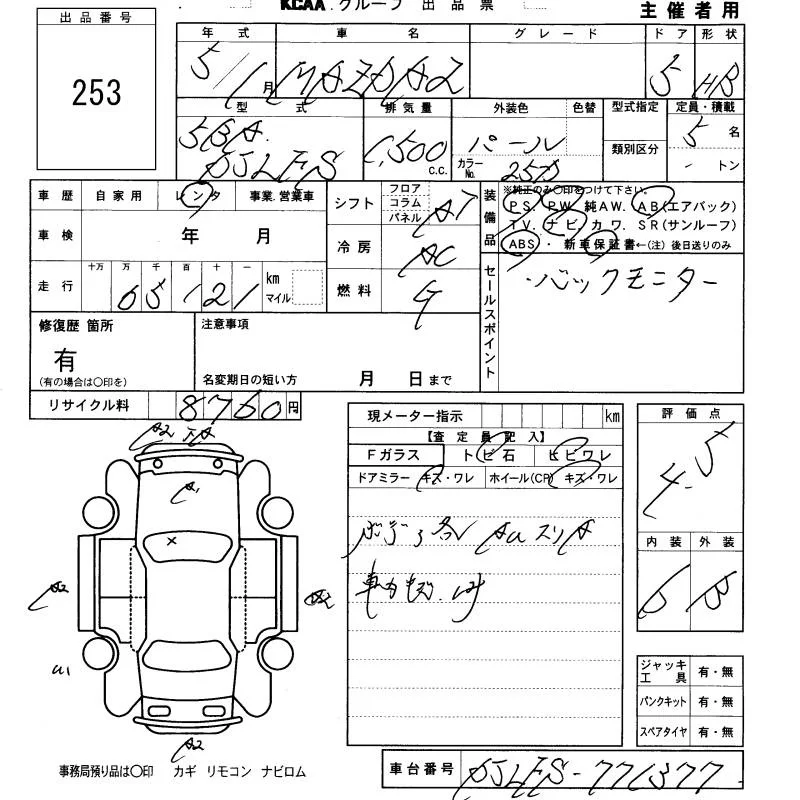 KCAA.グループ 出品票
主催者用
出品番号
253
年式 車名 グレード ドア 形状
5/1月 MAZDA2 5 HB
型式 排気量 外装色 色替 型式指定 定員・積載
5BA- 1,500 c.c. パール 5 名
DJLFS カラーNo. 25D 類別区分 - トン
車歴 自家用 レンタ 事業.営業車
シフト フロア コラム パネル AT
装備品 ※純正のみ〇印をつけて下さい。
PS. PW. 純AW. AB(エアバック)
TV. ナビ カワ. SR(サンルーフ)
ABS・ 新車保証書←(注) 後日送りのみ
車検 年 月
冷房 AC
走行 十万 万 千 百 十 一 km マイル
65121
燃料 G
セールスポイント ・バックモニター
修復歴 箇所
有
(有の場合は〇印を)
注意事項
名変期日の短い方 月 日まで
リサイクル料 8760円
現メーター指示 km
【査定員記入】
Fガラス トビ石 ヒビワレ
ドアミラー キズ・ワレ ホイール(CP) キズ・ワレ
評価点
4.5
内装 外装
B B
A2
A1
×
A2
A2
A2
ボディ各
車内
ジャッキ工具 有・無
パンクキット 有・無
スペアタイヤ 有・無
事務局預り品は〇印 カギ リモコン ナビロム
車台番号 DJLFS-771377